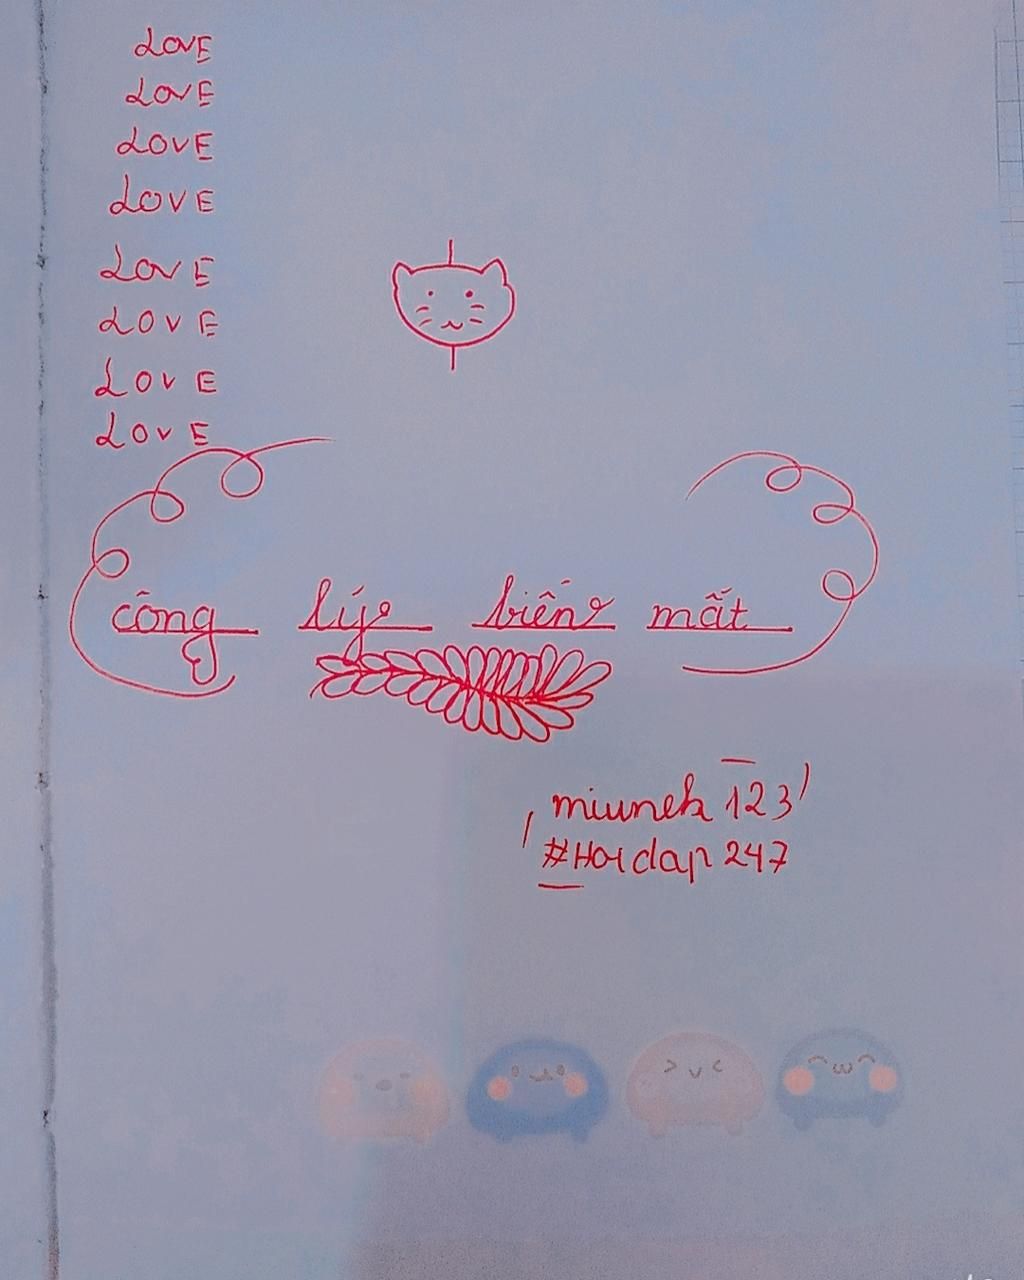 LOVE
LOVE
LOVE
LOVE
LOVE
LOVE
LOVE
LOVE
công lý biến mất
miunek 123
#Hoidap 247